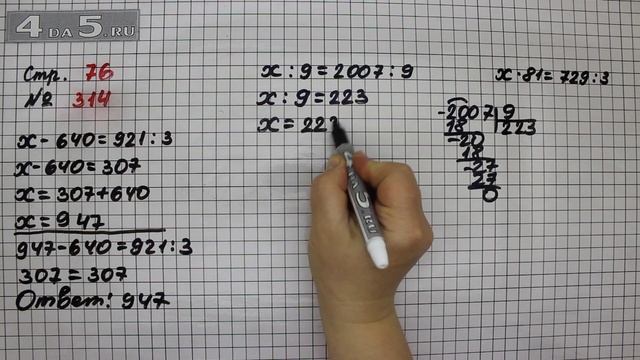 4 DA 5.RU
Стр. 76
№ 314
x - 640 = 921 : 3
x - 640 = 307
x = 307 + 640
x = 947
947 - 640 = 921 : 3
307 = 307
Ответ: 947
x : 9 = 2007 : 9
x : 9 = 223
x = 223
x · 81 = 729 : 3
-2007 | 9
18 | 223
-20
18
-27
27
0
4 DA 5.RU